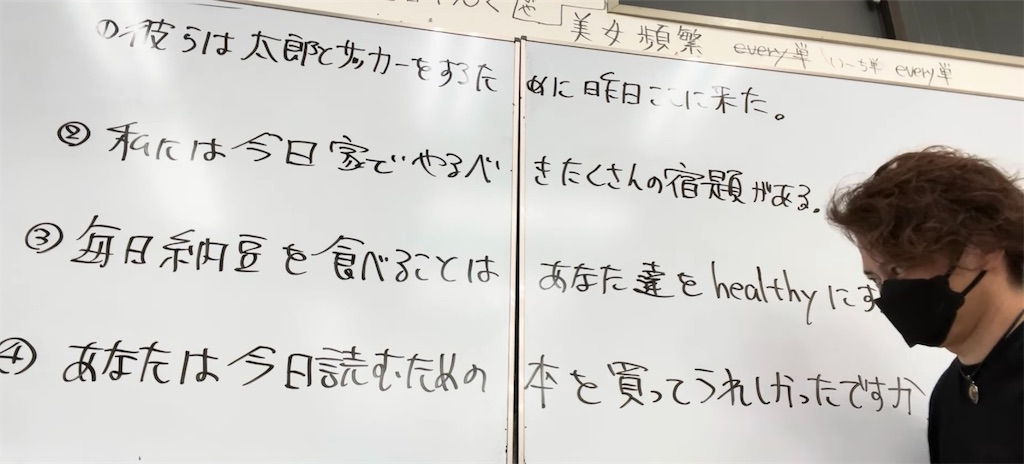 美女頻繁 every単 いーち単 every単
①彼らは太郎とサッカーをするために昨日ここに来た。
②私には今日家でやるべきたくさんの宿題がある。
③毎日納豆を食べることはあなた達をhealthyにす
④あなたは今日読むための本を買ってうれしかったですか